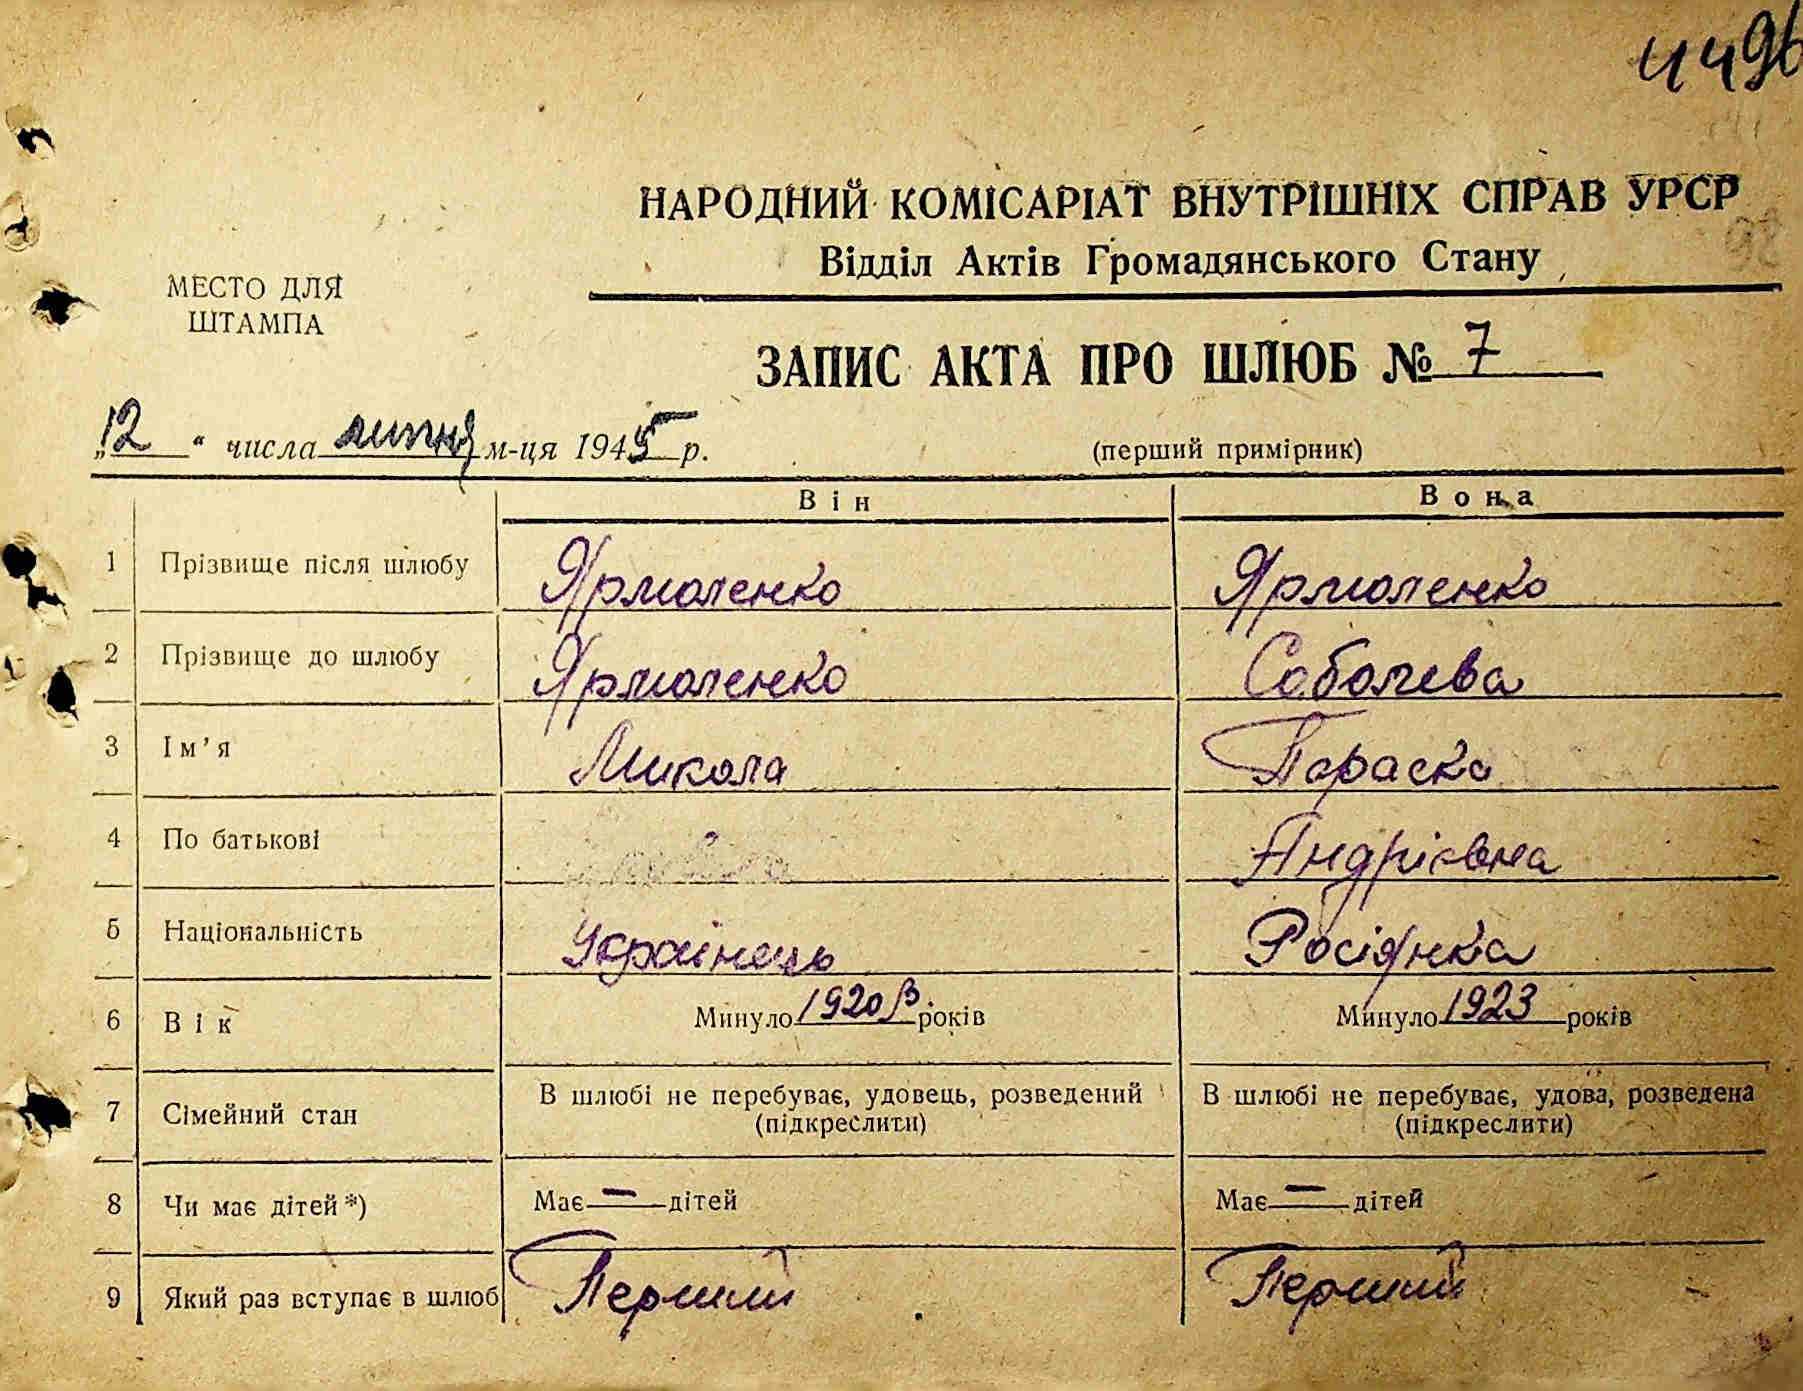 449
НАРОДНИЙ КОМІСАРІАТ ВНУТРІШНІХ СПРАВ УРСР
92
Відділ Актів Громадянського Стану
МЕСТО ДЛЯ
ШТАМПА
ЗАПИС АКТА ПРО ШЛЮБ № 7
„12“ числа липня м-ця 1945 р.
(перший примірник)
Він Вона
1 Прізвище після шлюбу Ярмоленко Ярмоленко
2 Прізвище до шлюбу Ярмоленко Соболева
3 Ім’я Микола Параска
4 По батькові Андріївна
5 Національність Українець Росіянка
6 Вік Минуло 1920 р. років Минуло 1923 років
7 Сімейний стан В шлюбі не перебуває, удовець, розведений (підкреслити) В шлюбі не перебуває, удова, розведена (підкреслити)
8 Чи має дітей *) Має — дітей Має — дітей
9 Який раз вступає в шлюб Перший Перший